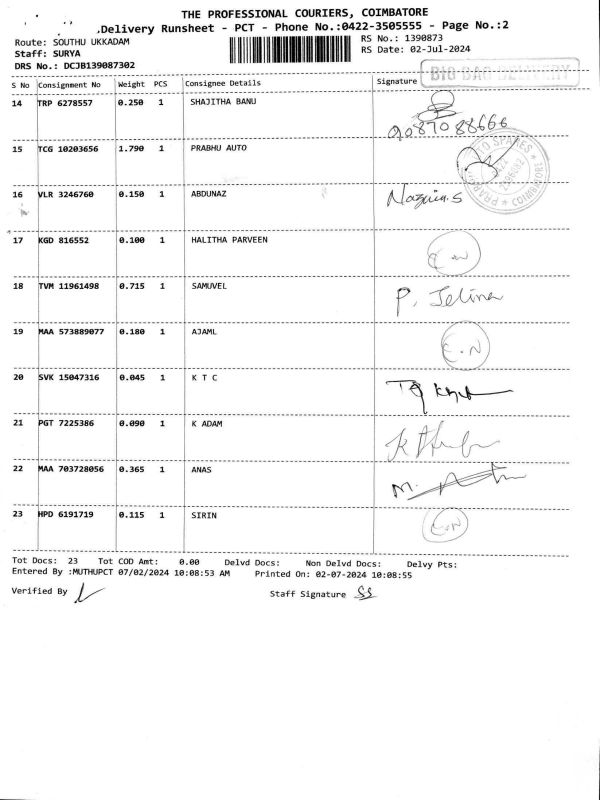 THE PROFESSIONAL COURIERS, COIMBATORE
Delivery Runsheet - PCT - Phone No.:0422-3505555 - Page No.:2
Route: SOUTHU UKKADAM
RS No.: 1390873
Staff: SURYA
RS Date: 02-Jul-2024
DRS No.: DCJB139087302
BIG BAG DELIVERY
S No Consignment No Weight PCS Consignee Details Signature
14 TRP 6278557 0.250 1 SHAJITHA BANU
9087088666
15 TCG 10203656 1.790 1 PRABHU AUTO
16 VLR 3246760 0.150 1 ABDUNAZ
17 KGD 816552 0.100 1 HALITHA PARVEEN
18 TVM 11961498 0.715 1 SAMUVEL P. Jelina
19 MAA 573889077 0.180 1 AJAML C.N
20 SVK 15047316 0.045 1 K T C
21 PGT 7225386 0.090 1 K ADAM
22 MAA 703728056 0.365 1 ANAS
23 HPD 6191719 0.115 1 SIRIN C.N
Tot Docs: 23 Tot COD Amt: 0.00 Delvd Docs: Non Delvd Docs: Delvy Pts:
Entered By :MUTHUPCT 07/02/2024 10:08:53 AM Printed On: 02-07-2024 10:08:55
Verified By
Staff Signature SS